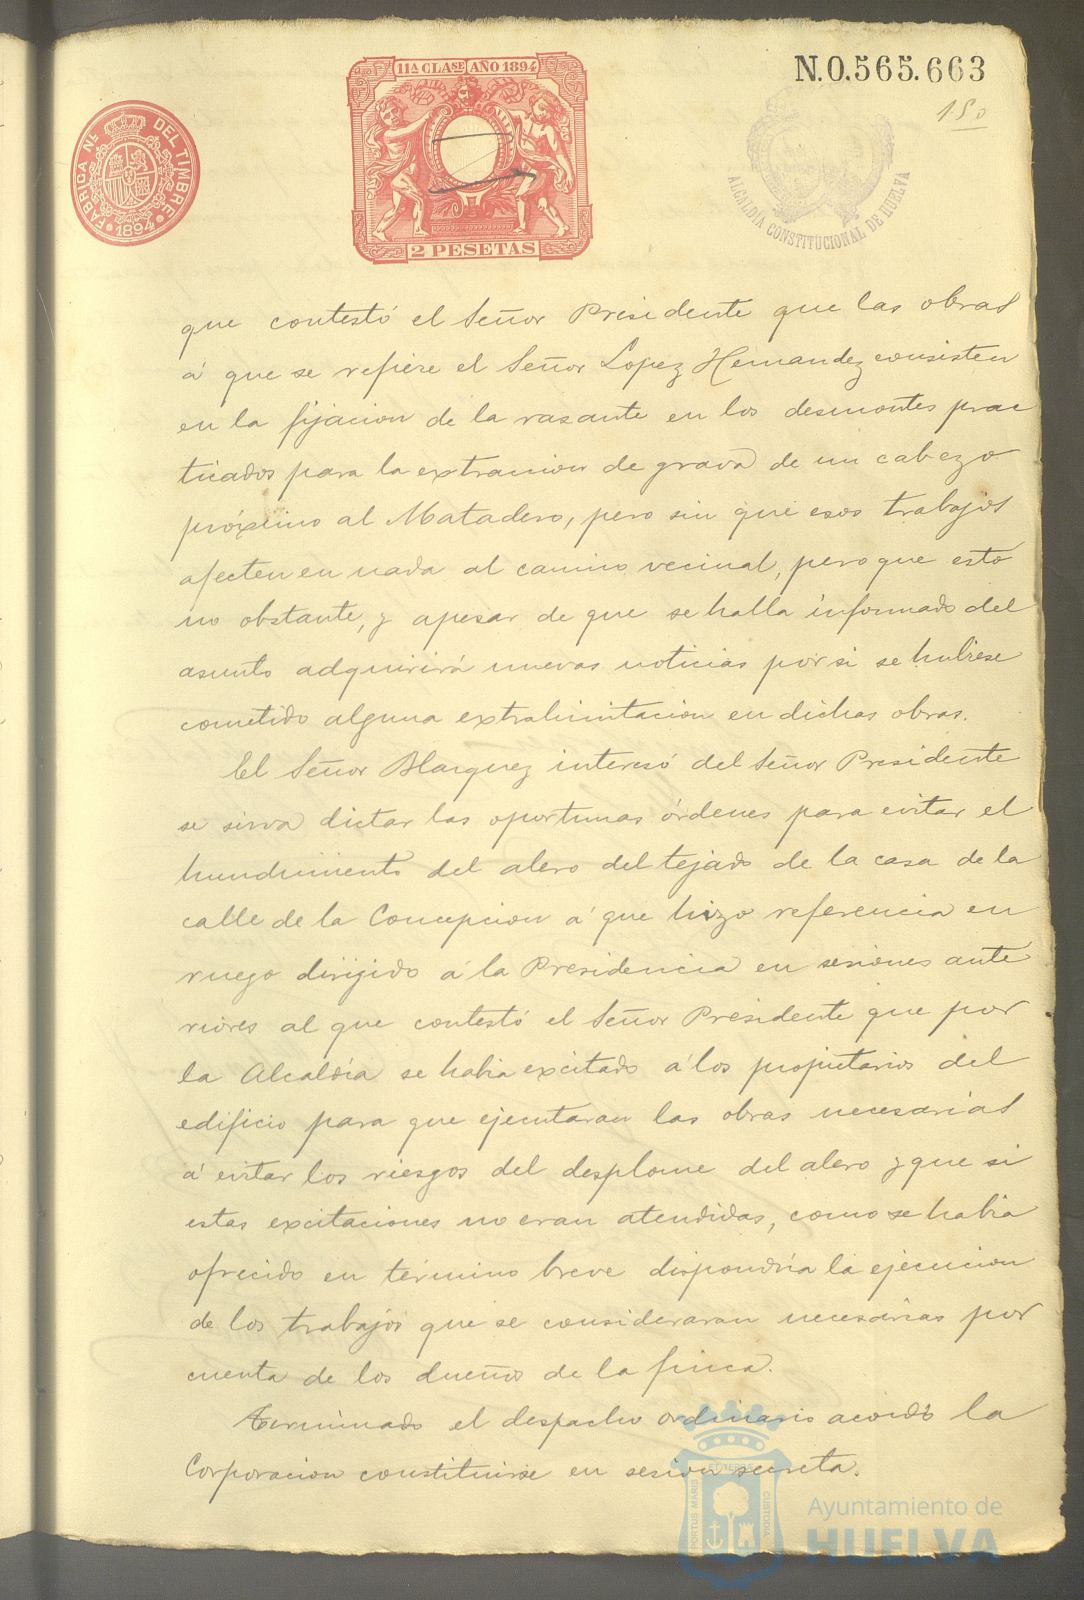 11ª CLASE AÑO 1894
N.0.565.663
150
FABRICA Nᴸ DEL TIMBRE
1894
2 PESETAS
ALCALDÍA CONSTITUCIONAL DE HUELVA
que contestó el Señor Presidente que las obras
á que se refiere el Señor Lopez Hernandez consisten
en la fijacion de la rasante en los desmontes prac
ticados para la extraccion de grava de un cabezo
próximo al Matadero, pero sin que esos trabajos
afecten en nada al camino vecinal, pero que esto
no obstante, y apesar de que se halla informado del
asunto adquirirá nuevas noticias por si se hubiese
cometido alguna extralimitacion en dichas obras.
El Señor Blazquez interesó del Señor Presidente
se sirva dictar las oportunas órdenes para evitar el
hundimiento del alero del tejado de la casa de la
calle de la Concepcion á que hizo referencia en
ruego dirijido á la Presidencia en sesiones ante
riores al que contestó el Señor Presidente que por
la Alcaldía se habia excitado á los propietarios del
edificio para que ejecutaran las obras necesarias
á evitar los riesgos del desplome del alero y que si
estas excitaciones no eran atendidas, como se habia
ofrecido en término breve dispondría la ejecucion
de los trabajos que se consideraran necesarias por
cuenta de los dueños de la finca.
Terminado el despacho ordinario acordó la
Corporacion constituirse en sesion secreta.
PORTUS MARIS ET TERRAE CUSTODIA
Ayuntamiento de
HUELVA